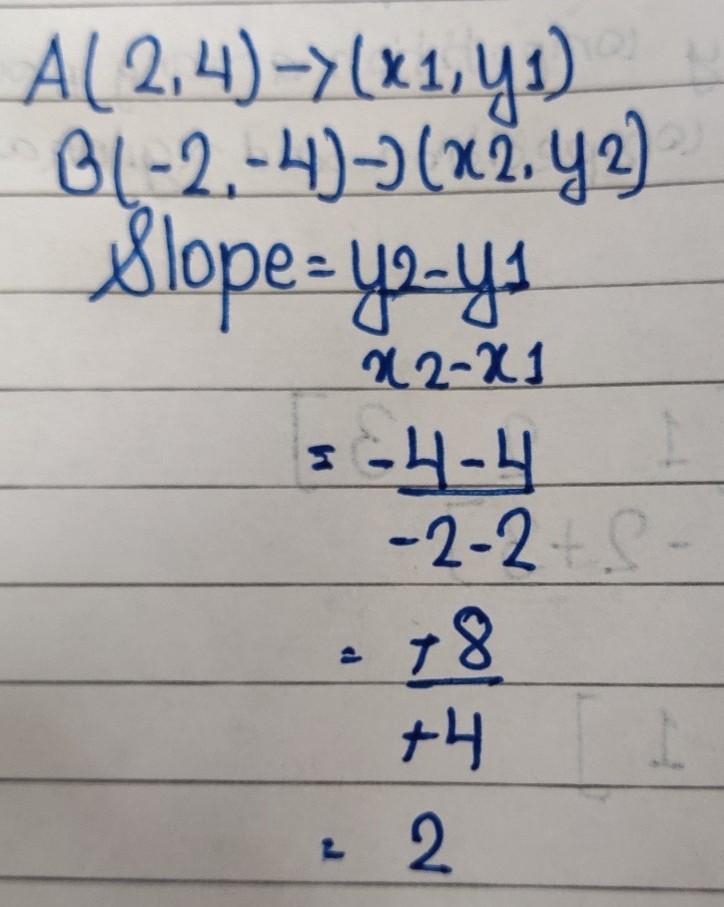 A(2,4)->(x1,y1)
B(-2,-4)->(x2,y2)
Slope=y2-y1
x2-x1
= -4-4
-2-2
= +8
+4
= 2